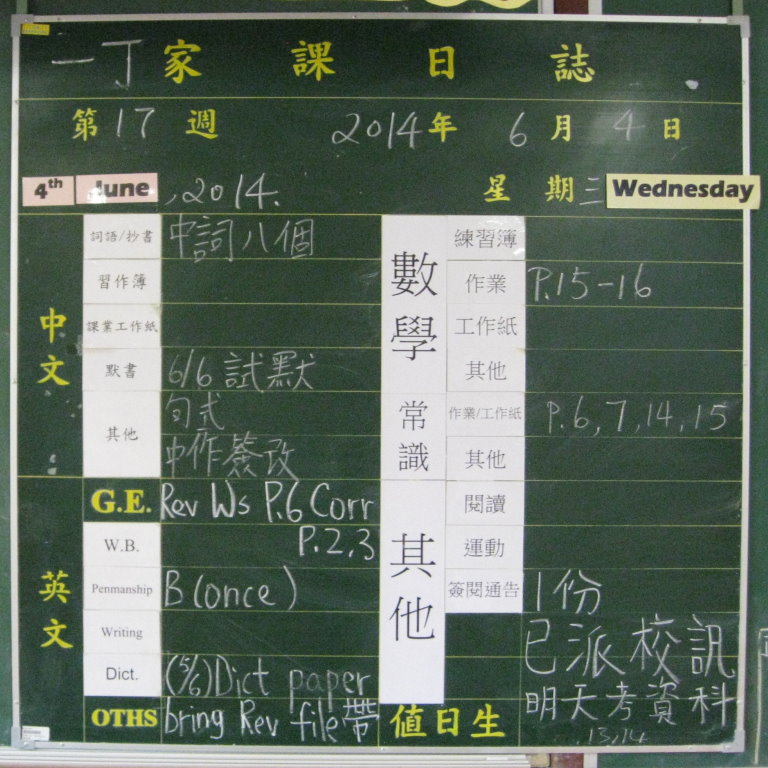 一丁家課日誌
第17週 2014年 6月 4日
4th June, 2014. 星期三 Wednesday
中文
詞語/抄書 中詞八個
習作簿
課業工作紙
默書 6/6 試默
其他 句式
中作簽改
英文
G.E. Rev Ws P.6 Corr
W.B. P.2,3
Penmanship B(once)
Writing
Dict. (5/6) Dict paper
OTHS bring Rev file 帶
數學
練習簿
作業 P.15-16
工作紙
其他
常識
作業/工作紙 P.6,7,14,15
其他
其他
閱讀
運動
簽閱通告 1份
已派校訊
明天考資料
值日生 13,14